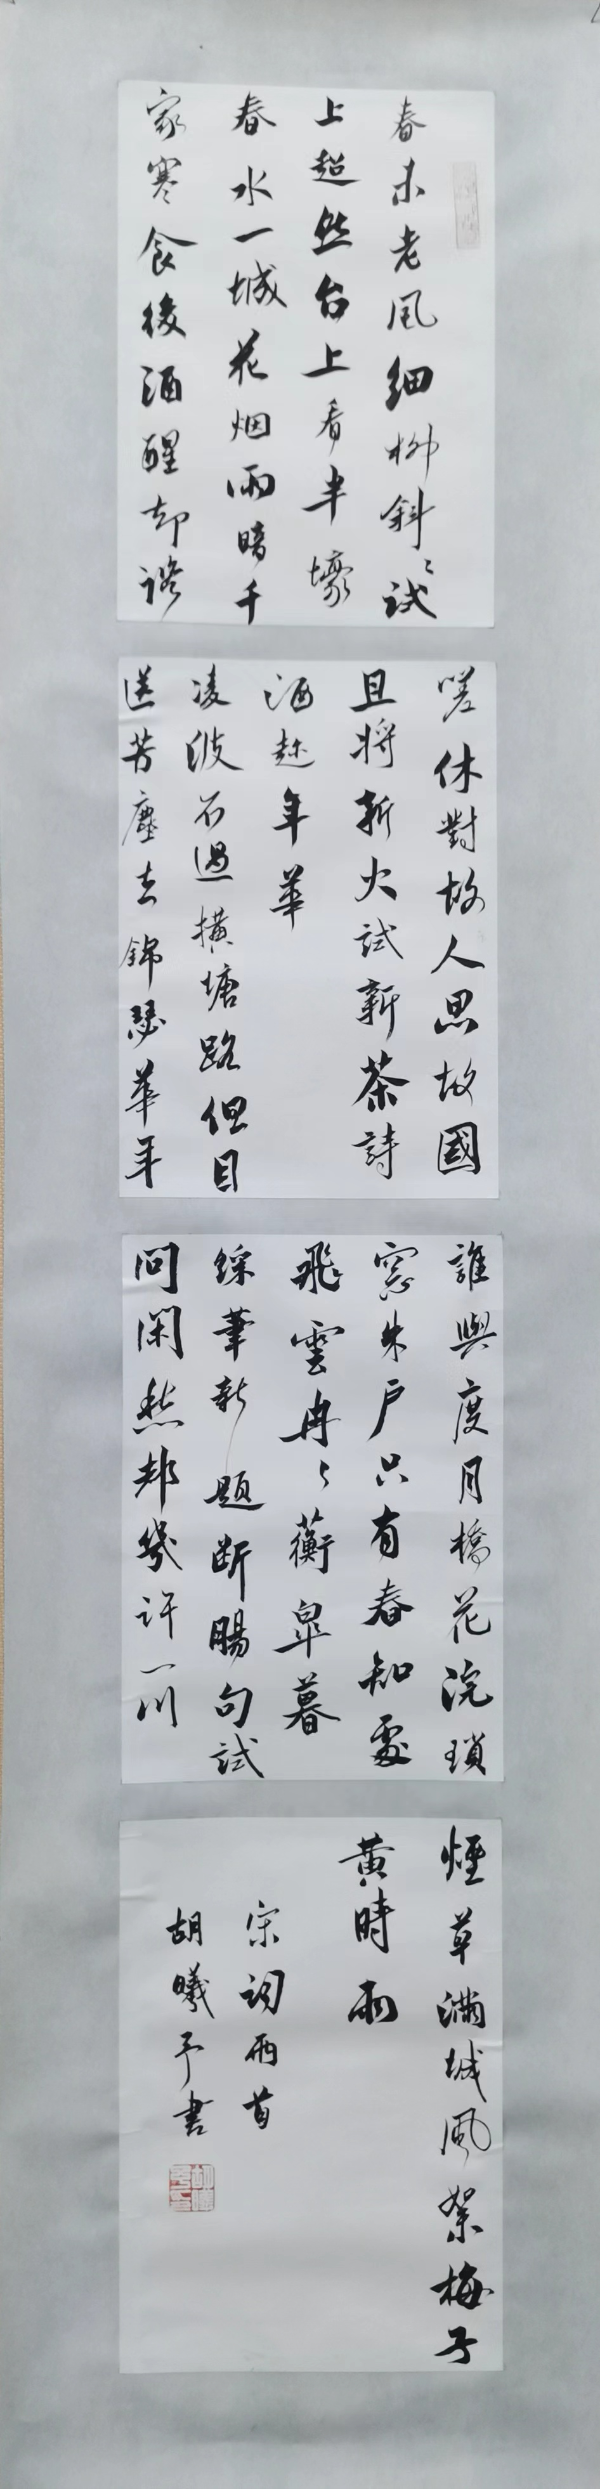 春未老风细柳斜〻试
上超然台上看半壕
春水一城花烟雨暗千
家寒食後酒醒却谘
嗟休對故人思故國
且將新火試新茶詩
酒趁年華
凌波不過横塘路但目
送芳塵去錦瑟華年
誰與度月橋花浣瑣
窓朱户只有春知處
飛雲冉〻蘅皐暮
綵筆新題断腸句試
问闲愁都幾许一川
煙草满城風絮梅子
黄時雨
宋词两首
胡曦予書